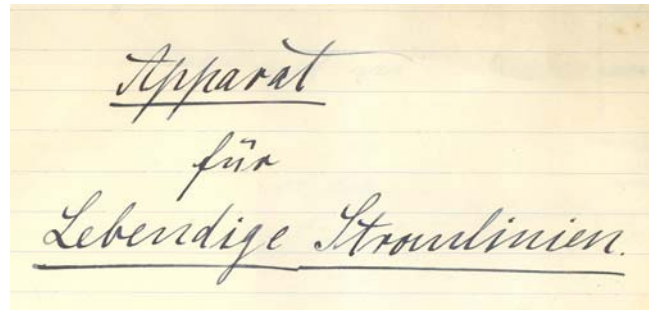 Apparat
für
Lebendige Stromlinien.